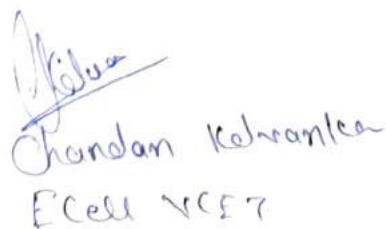 Chandan Kelvankar
ECell VCET